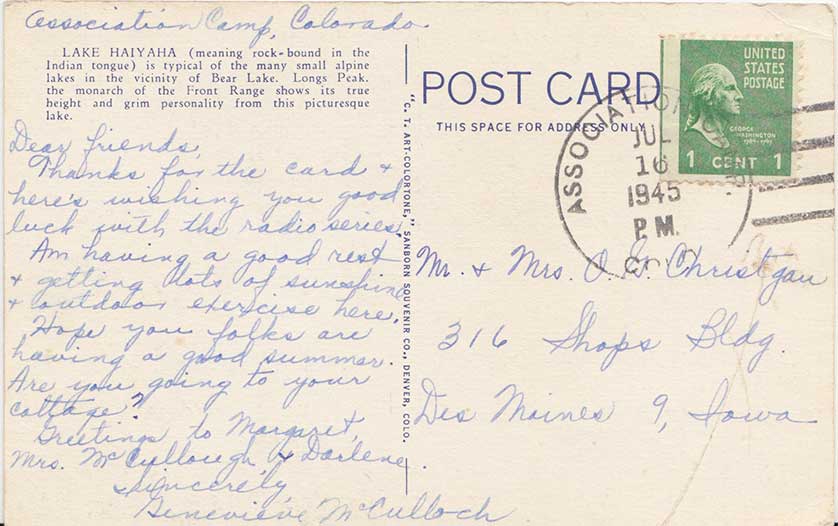 Association Camp, Colorado.
LAKE HAIYAHA (meaning rock-bound in the
Indian tongue) is typical of the many small alpine
lakes in the vicinity of Bear Lake. Longs Peak.
the monarch of the Front Range shows its true
height and grim personality from this picturesque
lake.
Dear friends,
Thanks for the card +
here's wishing you good
luck with the radio series.
Am having a good rest
+ getting lots of sunshine
+ outdoor exercise here.
Hope you folks are
having a good summer.
Are you going to your
cottage?
Greetings to Margaret,
Mrs. McCullough & Darlene.
Sincerely
Genevieve McCulloch
"C. T. ART-COLORTONE," SANBORN SOUVENIR CO., DENVER, COLO.
POST CARD
THIS SPACE FOR ADDRESS ONLY
UNITED
STATES
POSTAGE
GEORGE
WASHINGTON
1 CENT 1
ASSOCIATION
JUL
16
1945
P.M.
COLO
Mr. + Mrs. O. G. Christgau
316 Shops Bldg.
Des Moines 9, Iowa